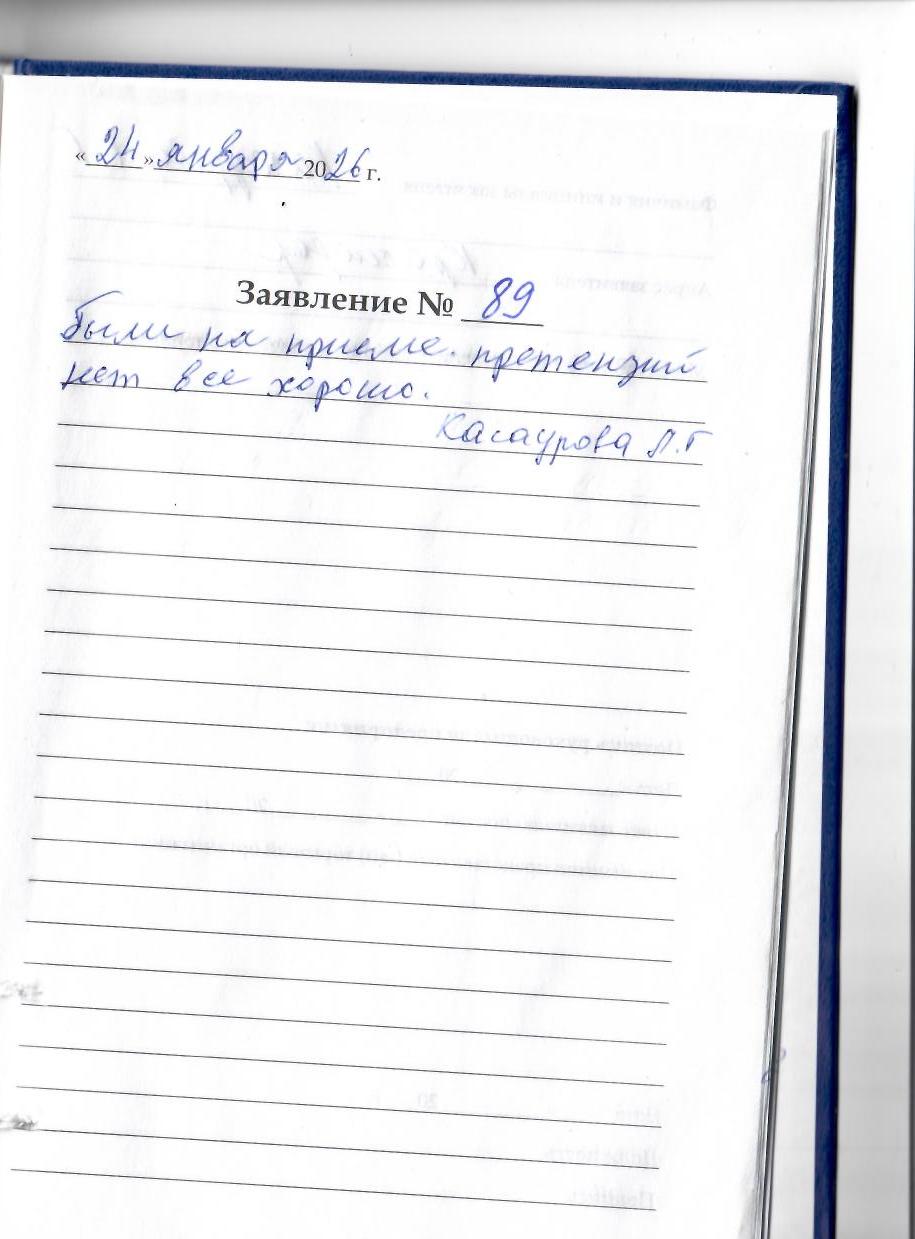 « 24 » января 2026 г.
Заявление № 89
были на приеме. претензий
нет все хорошо.
Касаурова Л.Г